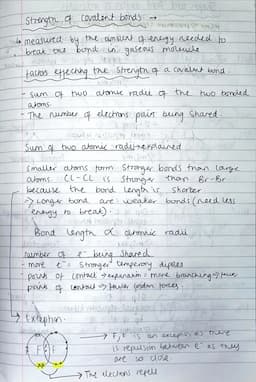 Strength of covalent bonds →
↳ measured by the amount of energy needed to
break one bond in gaseous molecule
factors effecting the strength of a covalent bond
- Sum of two atomic radii of the two bonded
atoms
- The number of electrons pair being shared
Sum of two atomic radii explained
Smaller atoms form stronger bonds than large
atoms. Cl-Cl is stronger than Br-Br
because the bond length is shorter
→ Longer bond are weaker bonds (need less
energy to break)
Bond length ∝ atomic radii
number of e⁻ being shared
- more e⁻ = stronger temporary dipoles
point of contact → : more branching →
point of contact → london forces
→ Exception
→ F₂ is an exception as there
is repulsion between e⁻ as they
are so close
F F
→ The electrons repell